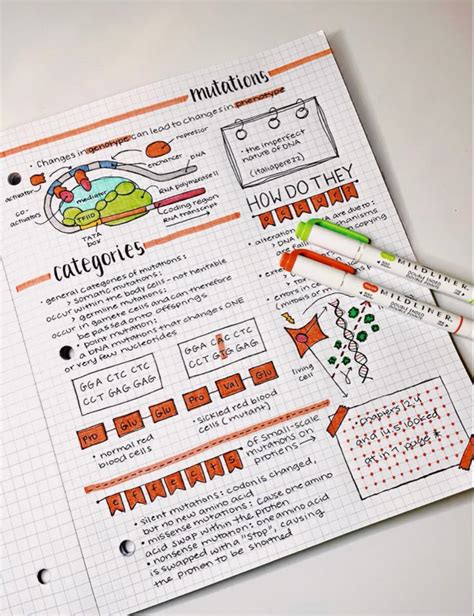 mutations
• Changes in genotype can lead to changes in phenotype
repressor
enhancer
DNA
activator
mediator
RNA polymerase II
co-
activators
TFIID
coding region
RNA transcript
TATA
box
• the imperfect
nature of DNA
(italiaperezz)
HOW DO THEY
categories
• general categories of mutations:
> somatic mutations:
occur within the body cells - not heritable
> germline mutations:
occur in gamete cells and can therefore
be passed onto offsprings
• point mutation:
a DNA mutation that changes ONE
or very few nucleotides
GGA CTC CTC
CCT GAG GAG
GGA CAC CTC
CCT GTG GAG
Pro Glu Glu
Pro Val Glu
• normal red
blood cells
• sickled red blood
cells (mutant)
are due to:
mechanisms
copying
errors in
living
cell
MILDLINER
MILDLINER
effects
of small-scale
mutations on
protiens
• silent mutations: codon is changed,
but no new amino acid
• missense mutations: cause one amino
acid swap within the protien
• nonsense mutation: one amino acid
is swapped with a "stop", causing
the protien to be shorted
chapters 12.4